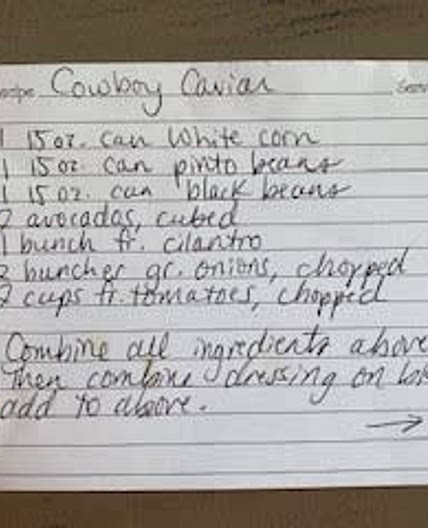 Cowboy Caviar
1 15 oz. can white corn
1 15 oz. can pinto beans
1 15 oz. can black beans
2 avocados, cubed
1 bunch fr. cilantro
2 bunches gr. onions, chopped
2 cups fr. tomatoes, chopped
Combine all ingredients above
Then combine dressing on
add to above.
→